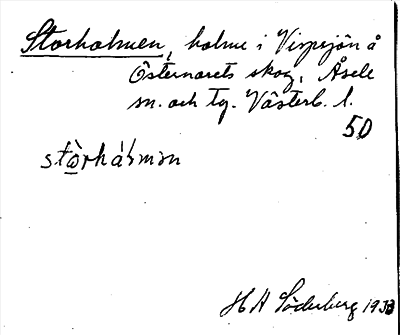 Storholmen, holme i Vispsjön å
Östernorets skog, Åsele
sn. och tg. Västerb. l.
5D
stòrhálmən
H A Söderberg 1933